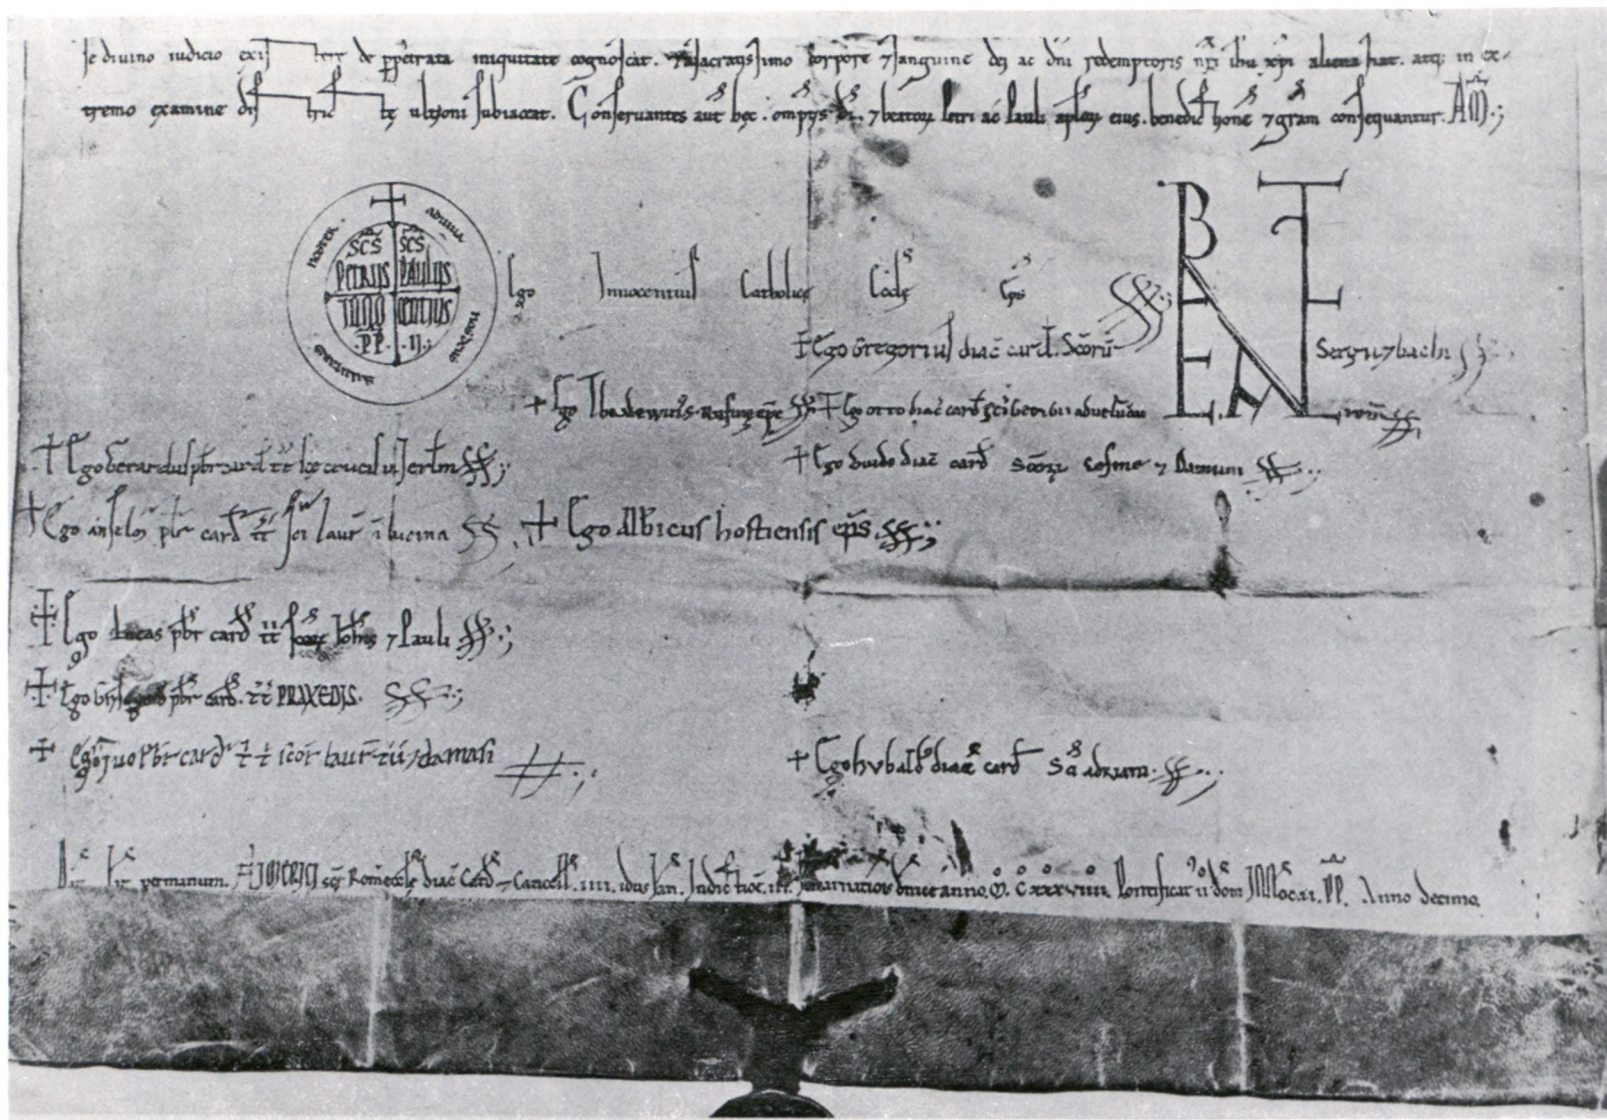 se diuino iudicio existere de ꝑpetrata iniquitate cognoscat. & a sacratissimo corpore & sanguine dei ac dñi redemptoris nr̃i ihu xp̃i aliena fiat. atq; in ex-
tremo examine districtę ultioni subiaceat. Conseruantes aut̃ hęc. omp̃tis dĩ. ⁊ beatoꝝ Petri ac̃ Pauli aplõꝝ eius. benedictionẽ ⁊ gr̃am consequantur. AM̃;
adiuua nos deus salutaris noster
SC̃S PETRUS SC̃S PAULUS INNOCENTIUS P̃P̃ .II.
Ego Innocentius Catholicę Ecclę Ep̃s
BENE VALETE
+ Ego Gregorius diac̃ card̃. Sc̃orũ Sergii ⁊ bachi
+ Ego Theodewinus Rufinę ep̃c
+ Ego otto diac̃ card̃ sc̃i Georgii ad uelũ aureũ
+ Ego Gerardus pb̃r card̃ tt̃ sc̃ę crucis in Ierl̃m
+ Ego Guido diac̃ card̃ Sc̃oꝝ Cosme ⁊ Damiani
+ Ego anselm̃ pb̃r card̃ tt̃ sc̃i laur̃ ĩ lucina
+ Ego Albricus hostiensis ep̃s
+ Ego Lucas pb̃r card̃ tt̃ sc̃oꝝ Ioh̃nis ⁊ Pauli
+ Ego pb̃r card̃. tt̃ PRAXEDIS.
+ Ego iuo Pb̃r card̃ tt sc̃or̃ laur̃tii ⁊ damasi
+ Ego hubald̃ diac̃ card̃ Sc̃ę Mariae
Dat̃ Lat̃ per manum. AIMERICI sc̃ę Romę ecclę diac̃ Card̃ ⁊ Cancell̃. IIII. idus Iañ. Indictioñe. III. Incarnationis dñice anno. M̊. C̊. xxxviiii. Pontificat̃ ũ doñi INNoc̃. ii. P̃P̃. Anno decimo.